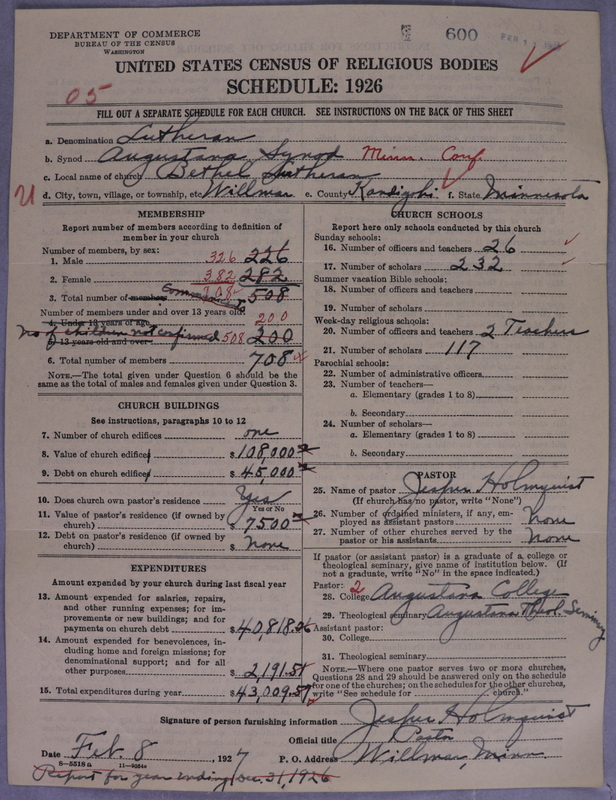 DEPARTMENT OF COMMERCE
BUREAU OF THE CENSUS
WASHINGTON
600
UNITED STATES CENSUS OF RELIGIOUS BODIES
SCHEDULE: 1926
05
FILL OUT A SEPARATE SCHEDULE FOR EACH CHURCH. SEE INSTRUCTIONS ON THE BACK OF THIS SHEET
a. Denomination Lutheran
b. Synod Augustana Synod Minn. Conf.
c. Local name of church Bethel Lutheran
d. City, town, village, or township, etc. Willmar e. County Kandiyohi f. State Minnesota
MEMBERSHIP
Report number of members according to definition of
member in your church
Number of members, by sex:
1. Male 326 226
2. Female 382 282
3. Total number of members 708 508
Number of members under and over 13 years old:
4. Under 13 years of age 200
No of children not confirmed 200
5. 13 years old and over 508
6. Total number of members 708
NOTE.—The total given under Question 6 should be the
same as the total of males and females given under Question 3.
CHURCH BUILDINGS
See instructions, paragraphs 10 to 12
7. Number of church edifices one
8. Value of church edifice $108,000
9. Debt on church edifice $45,000
10. Does church own pastor's residence? Yes
Yes or No
11. Value of pastor's residence (if owned by
church) $7500
12. Debt on pastor's residence (if owned by
church) $ None
EXPENDITURES
Amount expended by your church during last fiscal year
13. Amount expended for salaries, repairs,
and other running expenses; for im-
provements or new buildings; and for
payments on church debt $40,818.06
14. Amount expended for benevolences, in-
cluding home and foreign missions; for
denominational support; and for all
other purposes $2,191.51
15. Total expenditures during year $43,009.57
CHURCH SCHOOLS
Report here only schools conducted by this church
Sunday schools:
16. Number of officers and teachers 26
17. Number of scholars 232
Summer vacation Bible schools:
18. Number of officers and teachers
19. Number of scholars
Week-day religious schools:
20. Number of officers and teachers 2 Teachers
21. Number of scholars 117
Parochial schools:
22. Number of administrative officers
23. Number of teachers—
a. Elementary (grades 1 to 8)
b. Secondary
24. Number of scholars—
a. Elementary (grades 1 to 8)
b. Secondary
PASTOR
25. Name of pastor Jesper Holmquist
(If church has no pastor, write "None")
26. Number of ordained ministers, if any, em-
ployed as assistant pastors None
27. Number of other churches served by the
pastor or his assistants None
If pastor (or assistant pastor) is a graduate of a college or
theological seminary, give name of institution below. (If
not a graduate, write "No" in the space indicated.)
Pastor: 2
28. College Augustana College
29. Theological seminary Augustana Theol. Seminary
Assistant pastor:
30. College
31. Theological seminary
NOTE.—Where one pastor serves two or more churches,
Questions 28 and 29 should be answered only on the schedule
for one of the churches; on the schedules for the other churches,
write "See schedule for church."
Signature of person furnishing information Jesper Holmquist
Official title Pastor
Date Feb. 8 1927 P. O. Address Willmar, Minn.
8—5518a
Report for year ending Dec. 31, 1926